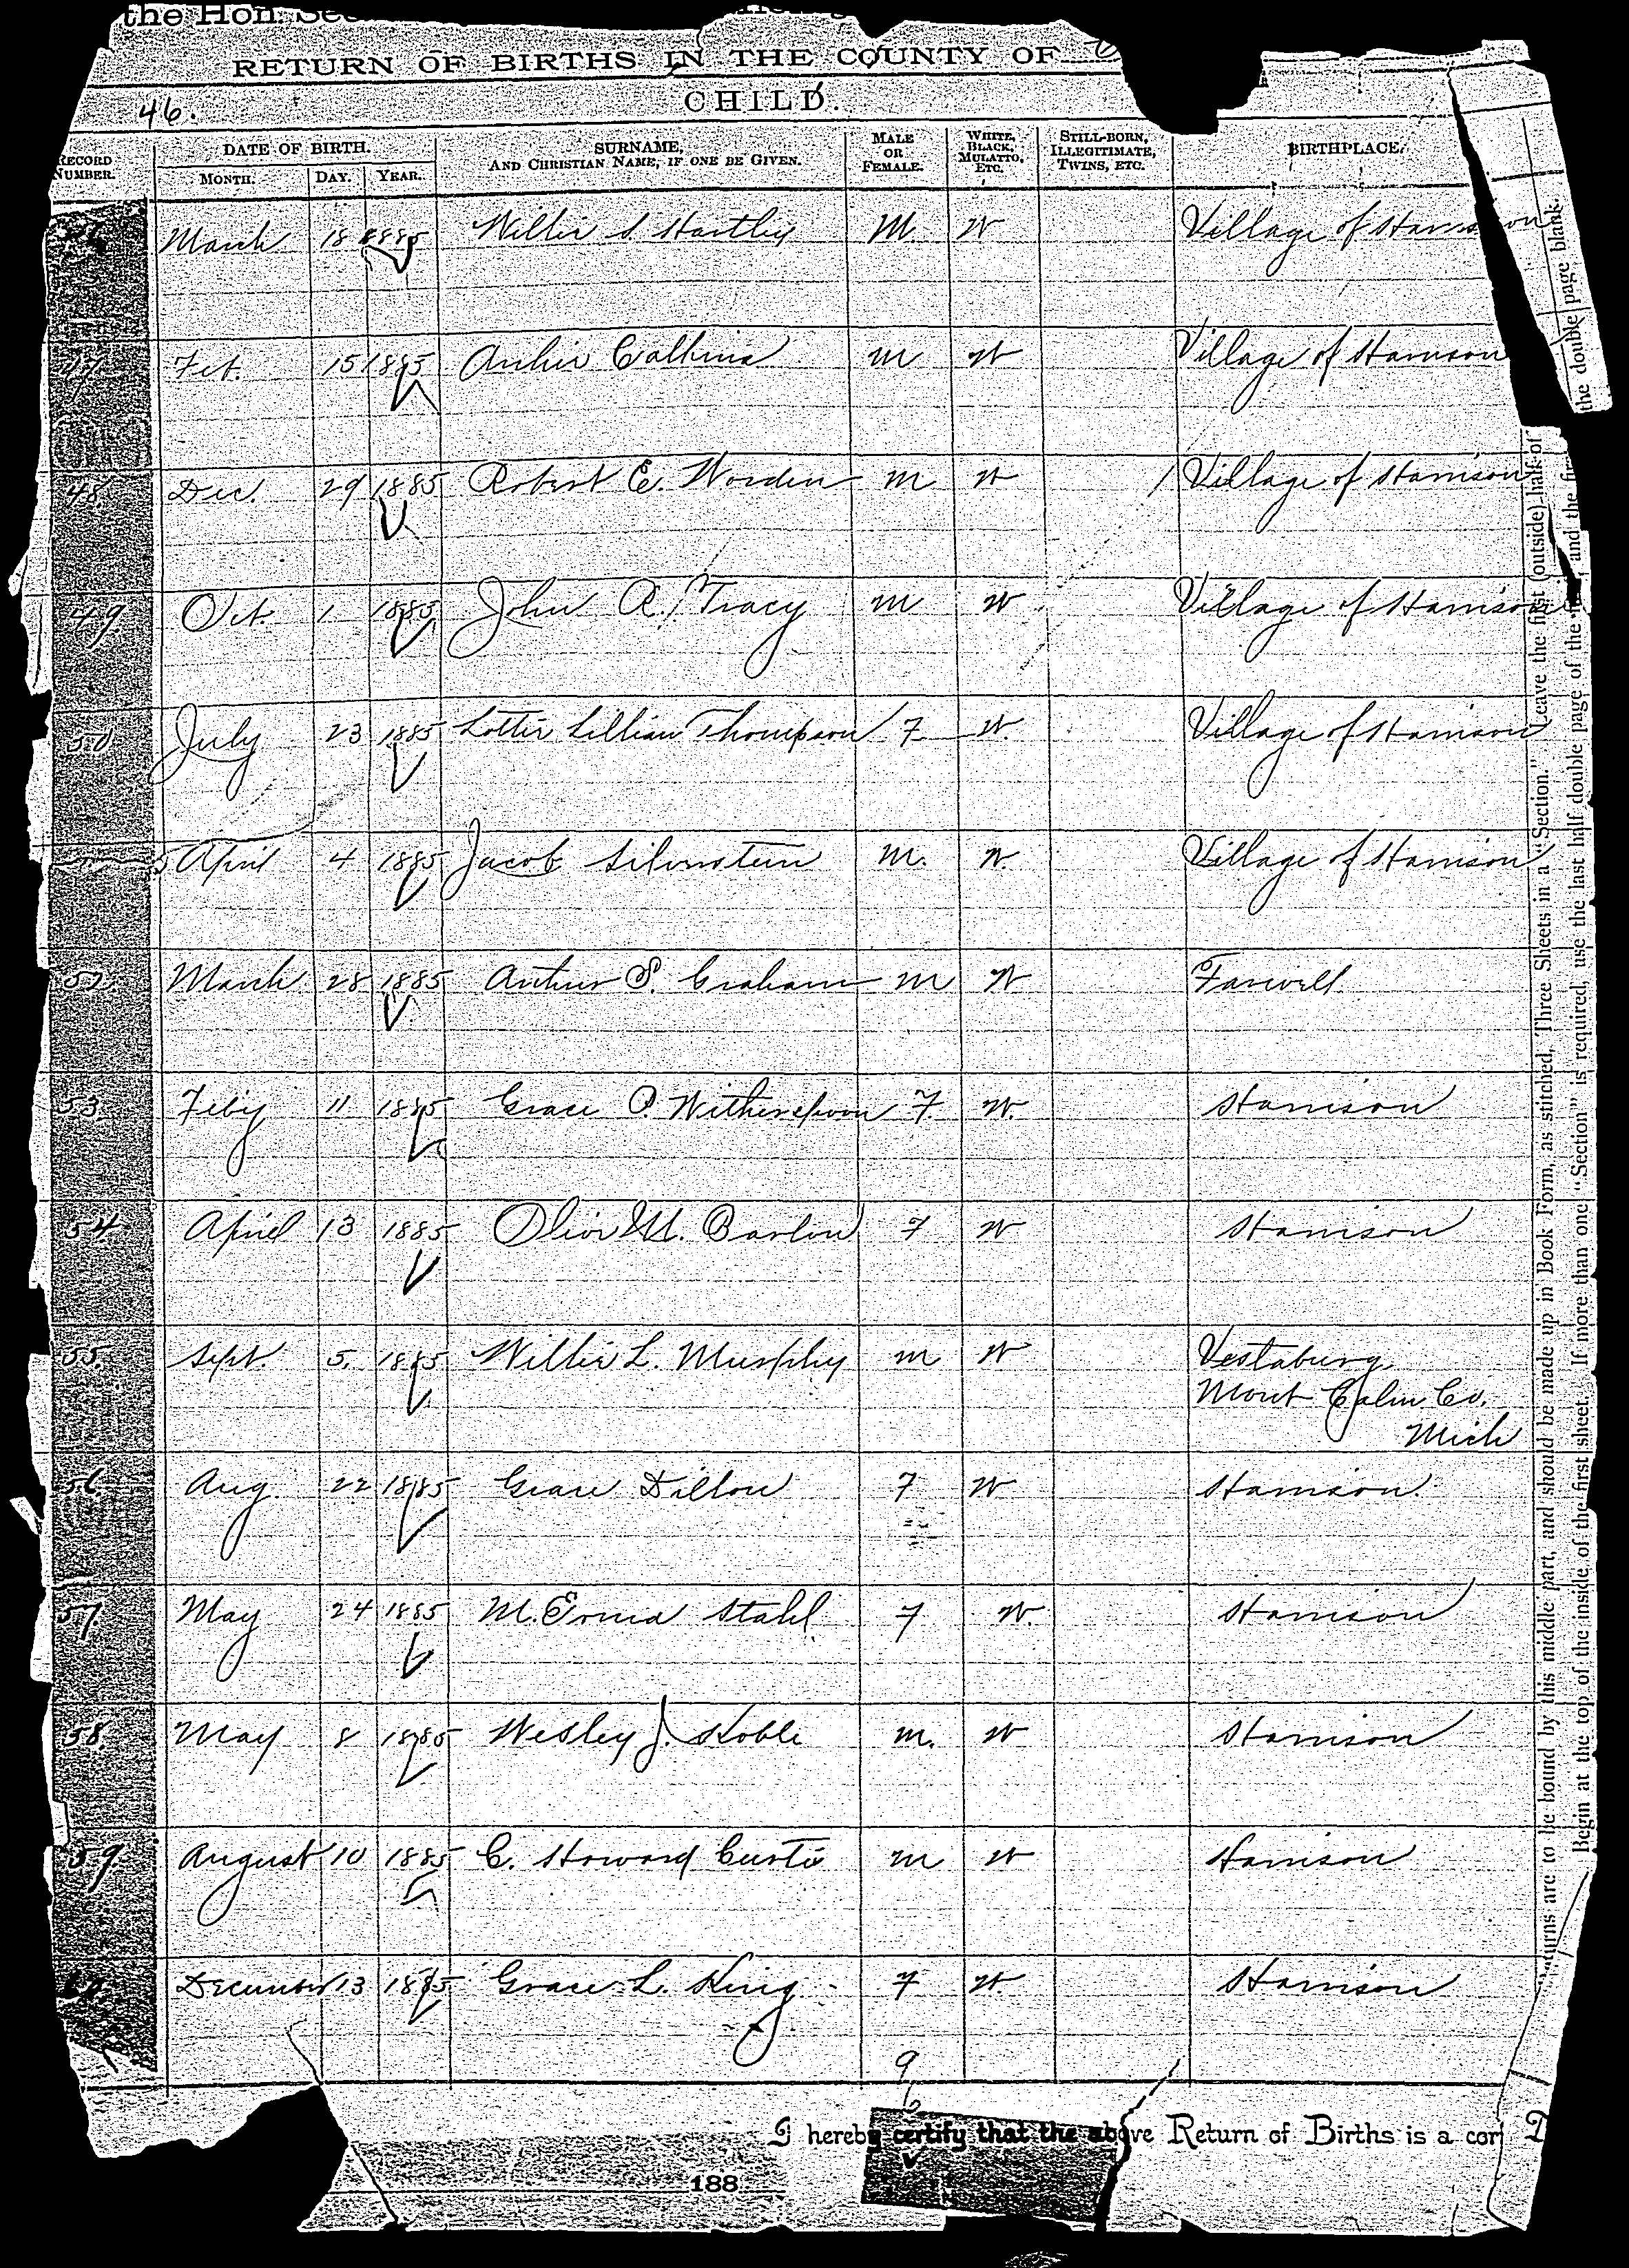 the Hon. Sec
RETURN OF BIRTHS IN THE COUNTY OF
46.
CHILD.
RECORD NUMBER.
DATE OF BIRTH.
MONTH. DAY. YEAR.
SURNAME, AND CHRISTIAN NAME, IF ONE BE GIVEN.
MALE OR FEMALE.
WHITE, BLACK, MULATTO, ETC.
STILL-BORN, ILLEGITIMATE, TWINS, ETC.
BIRTHPLACE.
March 18 1885 Willie S. Hartley M. W Village of Harrison
47 Feb. 15 1885 Archie Calkins M W Village of Harrison
48 Dec. 29 1885 Robert E. Worden M W Village of Harrison
49 Oct. 1 1885 John R. Tracy M W Village of Harrison
50 July 23 1885 Lottie Lillian Thompson F W. Village of Harrison
April 4 1885 Jacob Silverstein M. W. Village of Harrison
52 March 28 1885 Arthur S. Graham M W Farwell
53 Feby 11 1885 Grace O. Witherspoon F W. Harrison
54 April 13 1885 Olive M. Barlow F W Harrison
55. Sept. 5. 1885 Willie L. Murphy M W Vestaburg
Mont Calm Co.
Mich
56 Aug. 22 1885 Grace Dillon F W Harrison.
57 May 24 1885 M. Erma Stahl F W. Harrison
58. May 8 1885 Wesley J. Koble M. W Harrison
59. August 10 1885 C. Howard Curtis M W Harrison
60. December 13 1885 Grace L. King F W. Harrison
9
6
I hereby certify that the above Return of Births is a cor
188
returns are to be bound by this middle part, and should be made up in Book Form, as stitched, Three Sheets in a "Section." Leave the first (outside) half of
the double page blank.
Begin at the top of the inside of the first sheet. If more than one "Section" is required, use the last half double page of the and the fir